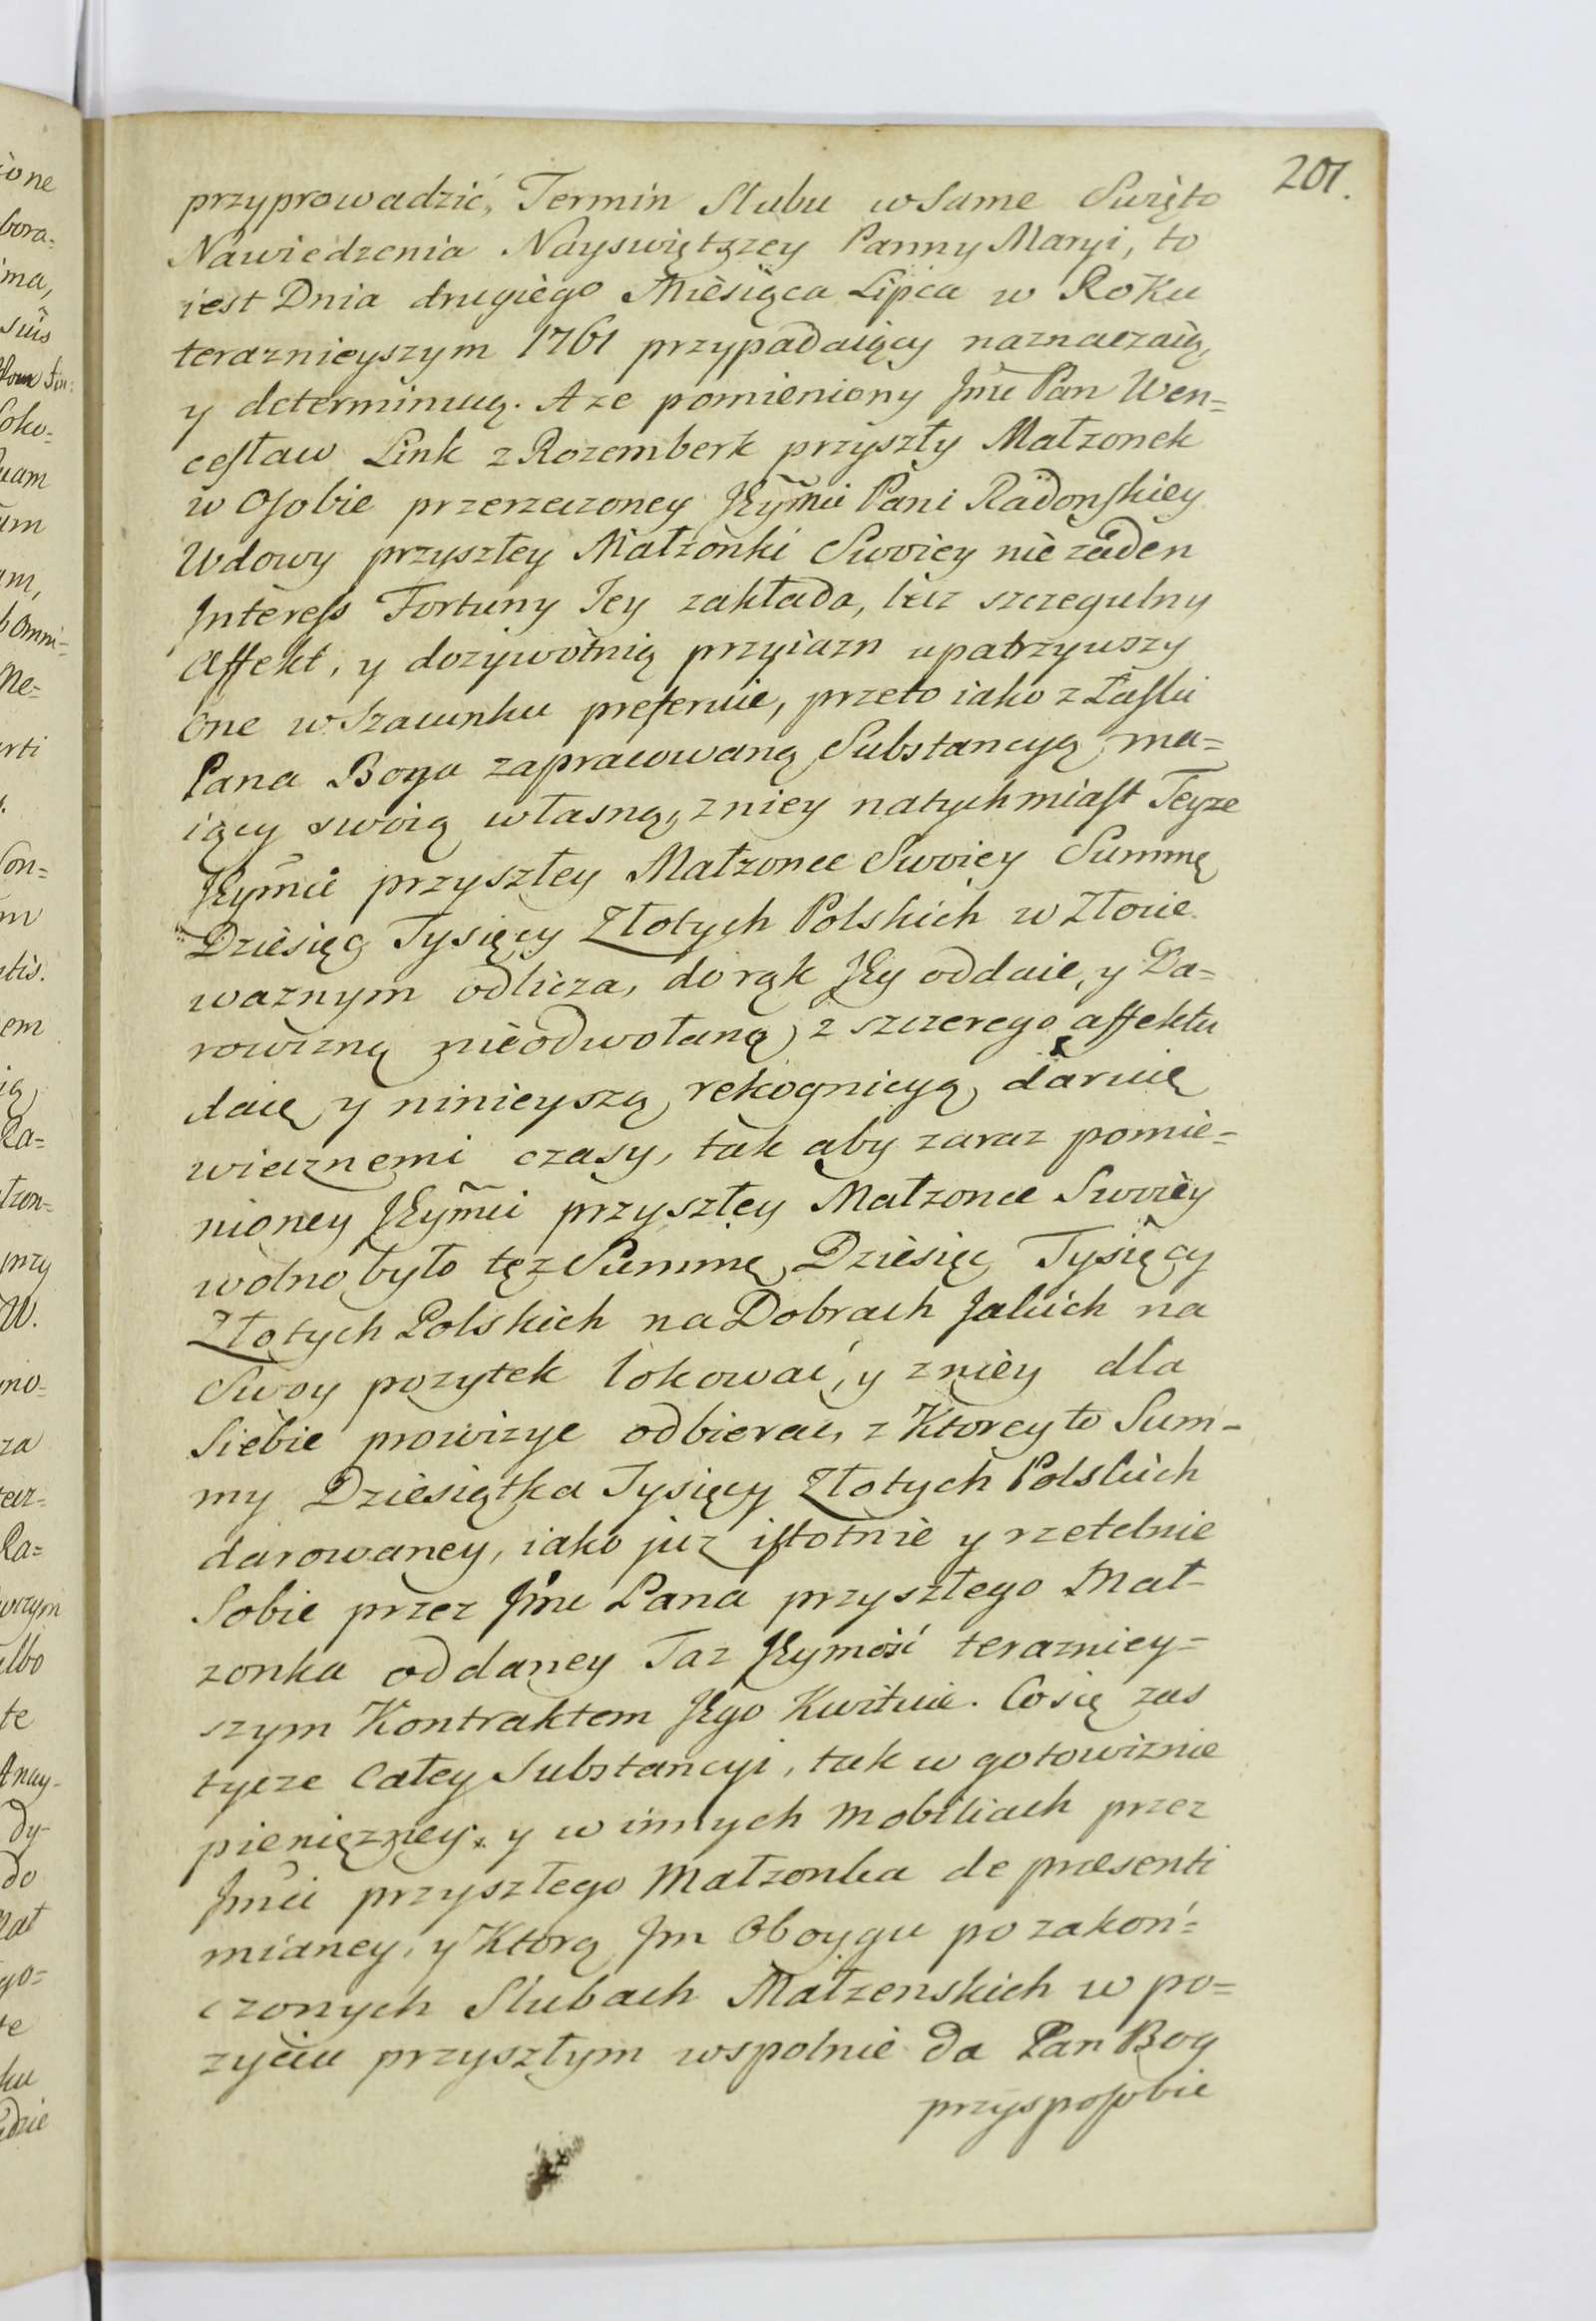 201.
przyprowadzić, Termin Slubu w same Swięto
Nawiedzenia Nayswiętszey Panny Maryi, to
iest Dnia drugiego Miesiąca Lipca w Roku
teraznieyszym 1761 przypadaiący naznaczaią,
y determinuią. A ze pomieniony Jmć Pan Wen=
cesław Link z Rozemberk przyszły Małzonek
w Osobie przerzeczoney JEymci Pani Radonskiey
Wdowy przyszłey Małzonki Swoiey nie zaden
Interess Fortuny Jey zakłada, lecz szczegulny
Affekt, y dozywotnią przyiazn upatrzywszy
one w szacunku preferuie, przeto iako z Łaski
Pana Boga zapracowaną Substancyą ma=
iący swoią własną, z niey natychmiast Teyze
JEymci przyszłey Małzonce Swoiey Summę
Dziesięć Tysięcy Złotych Polskich w Złocie
waznym odlicza, do rąk JEy oddaie, y Da=
rowizną nieodwołaną z szczerego affektu
daie y ninieyszą rekognicyą daruie
wiecznemi czasy, tak aby zaraz pomie=
nioney JEymci przyszłey Małzonce Swoiey
wolno było tęz Summę Dziesięć Tysięcy
Złotych Polskich na Dobrach Jakich na
Swoy pozytek lokować, y z niey dla
Siebie prowizye odbierac, z Ktorey to Sum-
my Dziesiątka Tysięcy Złotych Polskich
darowaney, iako juz istotnie y rzetelnie
Sobie przez Jmć Pana przyszłego Mał-
zonka oddaney Taz JEymość terazniey=
szym Kontraktem JEgo Kwituie. Co się zas
tycze Całey Substancyi, tak w gotowiznie
pienięzney, y w innych mobiliach przez
Jmci przyszłego Małzonka de præsenti
mianey, y Ktorą Jm Oboygu po zakoń=
czonych Slubach Małzenskich w po=
zyciu przyszłym wspolnie da Pan Bog
przysposobie